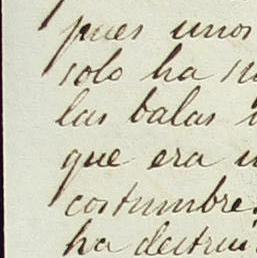 pues unos
solo ha
las balas
que era
costumbre.
ha